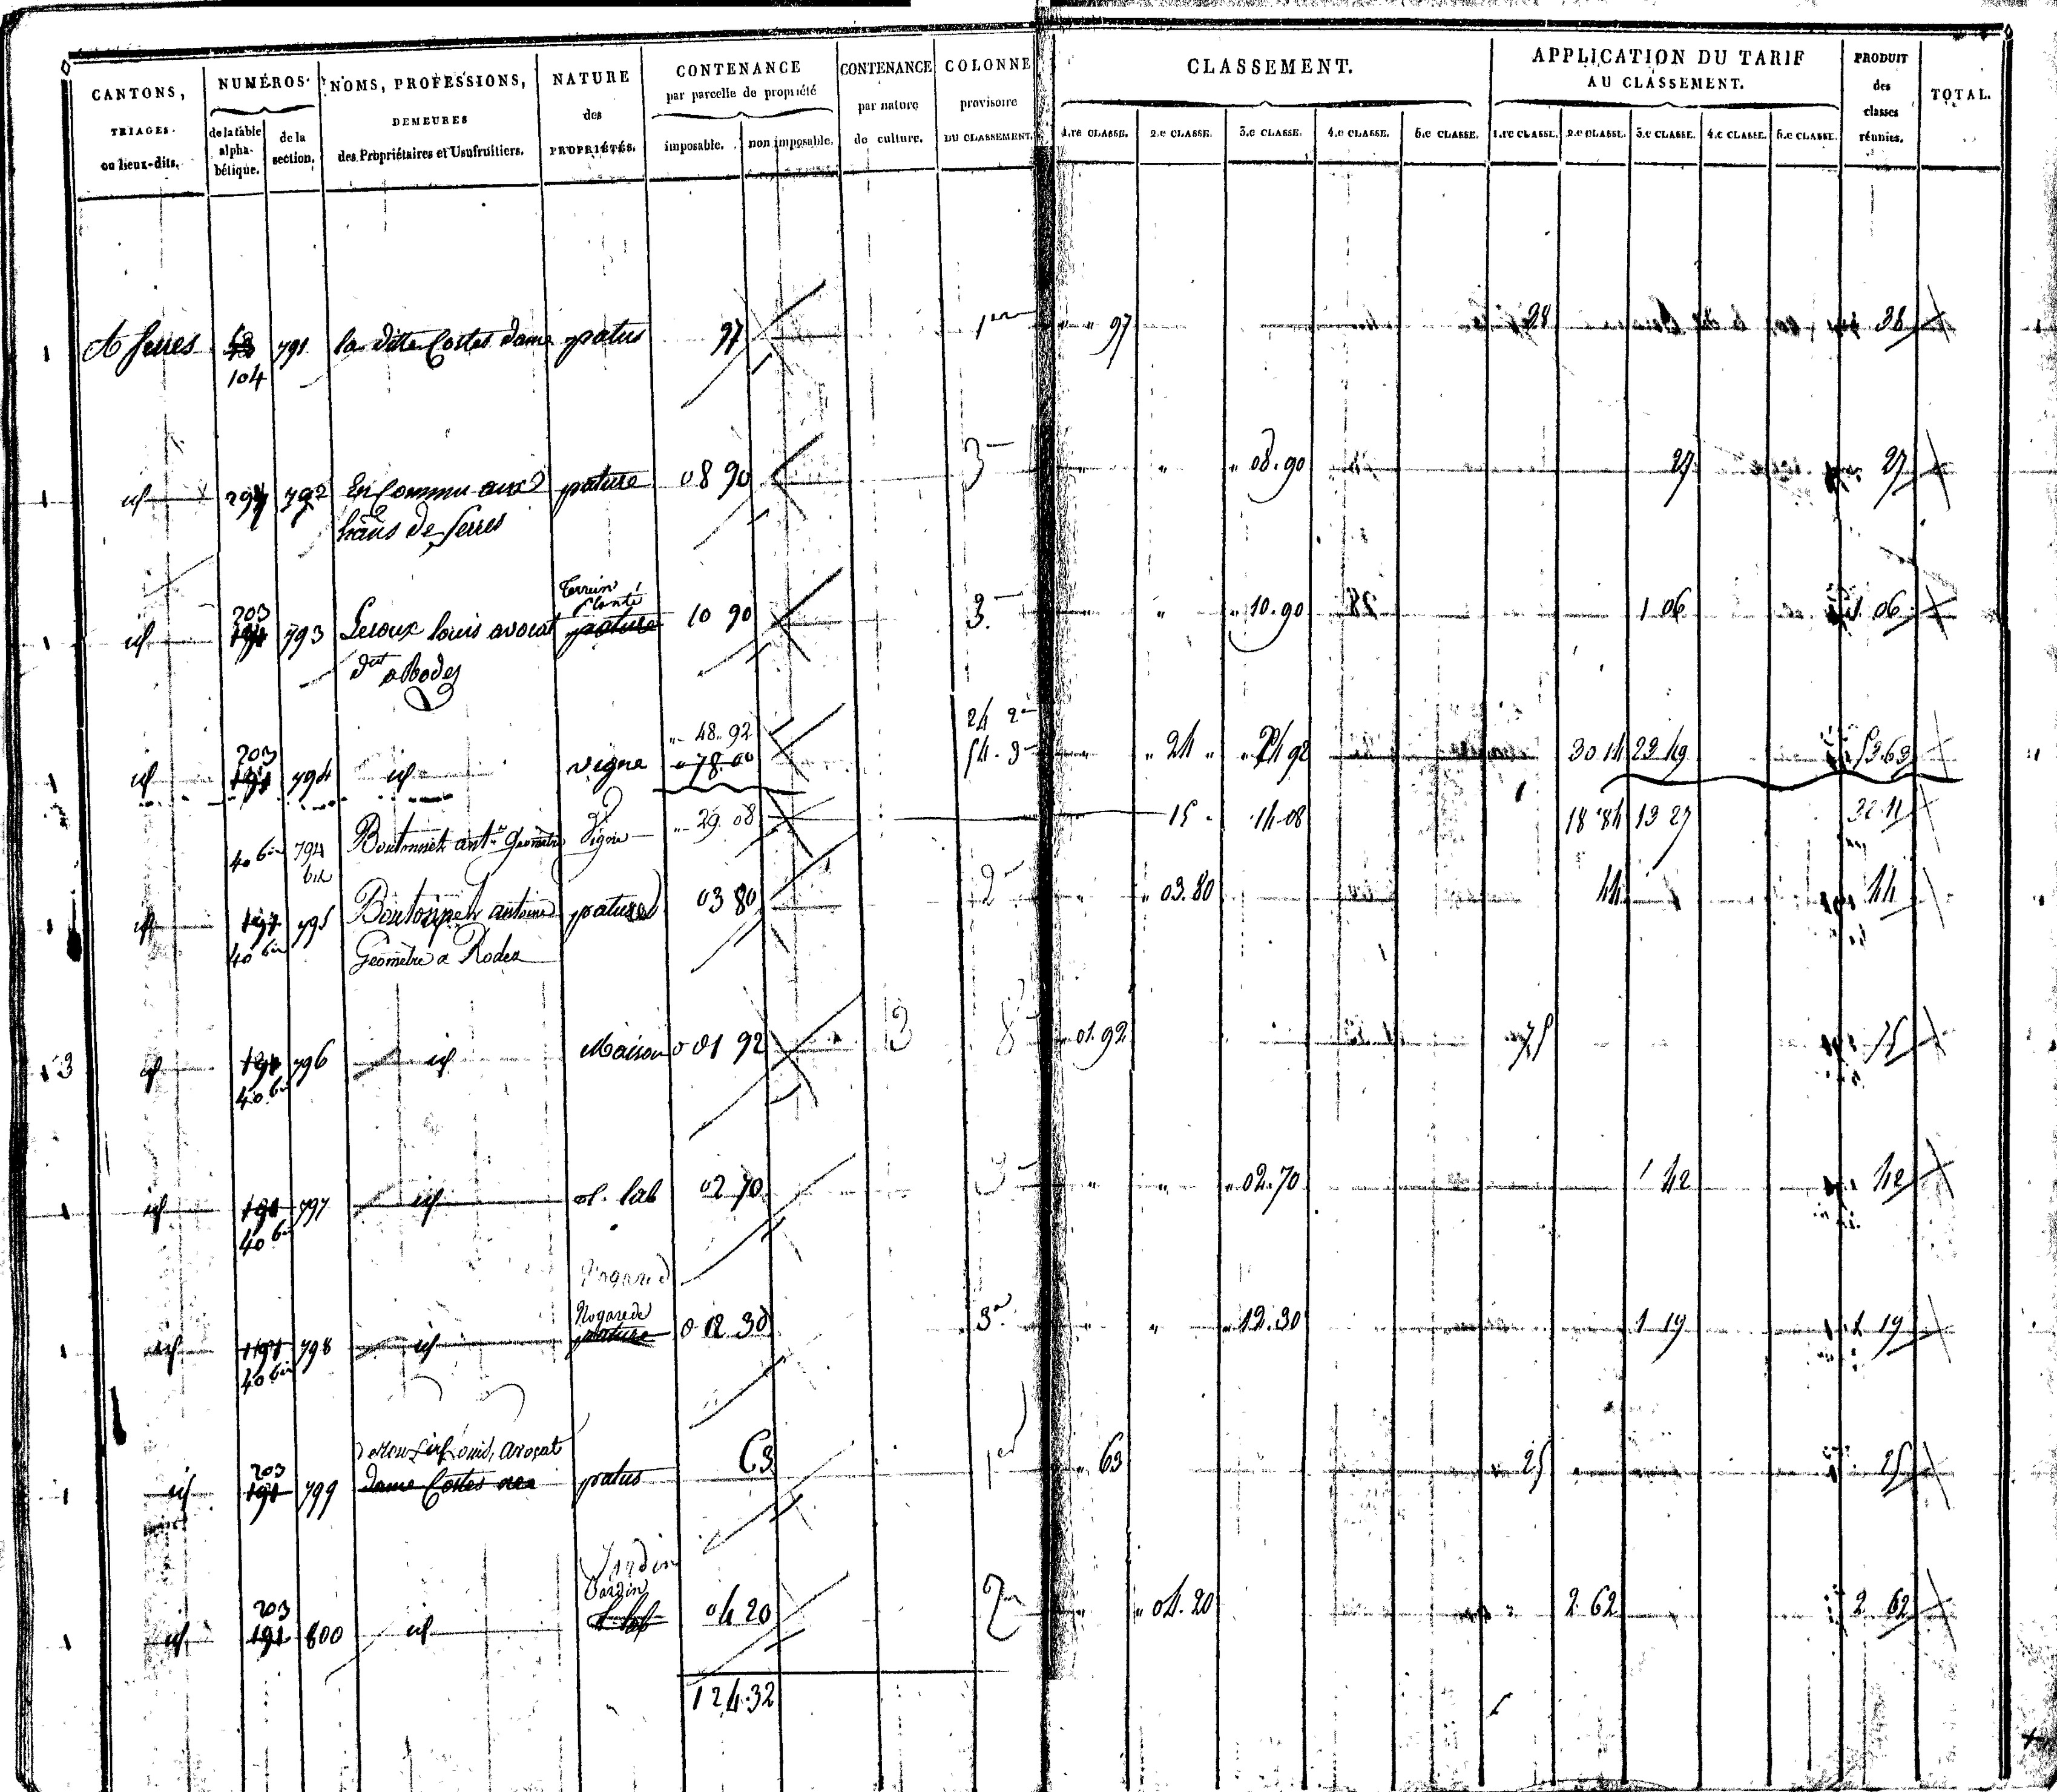 CANTONS, TRIAGES. ou lieux-dits.
NUMÉROS
de la table alpha-bétique.
de la section.
NOMS, PROFESSIONS, DEMEURES des Propriétaires et Usufruitiers.
NATURE des PROPRIÉTÉS.
CONTENANCE par parcelle de propriété
imposable.
non imposable.
CONTENANCE par nature de culture.
COLONNE provisoire DU CLASSEMENT.
CLASSEMENT.
1.re CLASSE. 2.e CLASSE. 3.e CLASSE. 4.e CLASSE. 5.e CLASSE.
APPLICATION DU TARIF AU CLASSEMENT.
1.re CLASSE. 2.e CLASSE. 3.e CLASSE. 4.e CLASSE. 5.e CLASSE.
PRODUIT des classes réunies.
TOTAL.
A Serres 791 la ditte Costes dame patus 97 1re 97 38 38
104
id 792 En Commun aux pature 08 90 3 08.90 27 27
haūs de Serres
Terrein
planté
203
id 191 793 Leroux louis avocat pature 10 90 3. 10.90 1 06 1 06
dit a Rodez
48.92 24 2e
203
id 191 794 id vigne 78.00 54.3 24 24 92 30 14 23 49 53.63
40 bis 794 bis Boutonnet ant.ne Géomètre Vigne 29.08 15 14.08 18 84 13 27 32.11
id 191 795 Boutonnet antoine pature 03 80 2 03.80 44 44
40 bis Géomètre a Rodez
3 id 191 796 id Maison 0 01 92 8 01.92 75 75
40 bis
id 191 797 id t. lab 02 70 3 02.70 1 42 1 42
40 bis
Nogared
Nogarede
id 191 798 id pature 0 12 30 3e 12.30 1 19 1 19
40 bis
Leroux Louis, avocat
203
id 191 799 dame Costes patus 63 1er 63 25 25
Jardin
Jardin
203
id 191 800 id t. lab 04 20 2 04.20 2 62 2 62
124.32